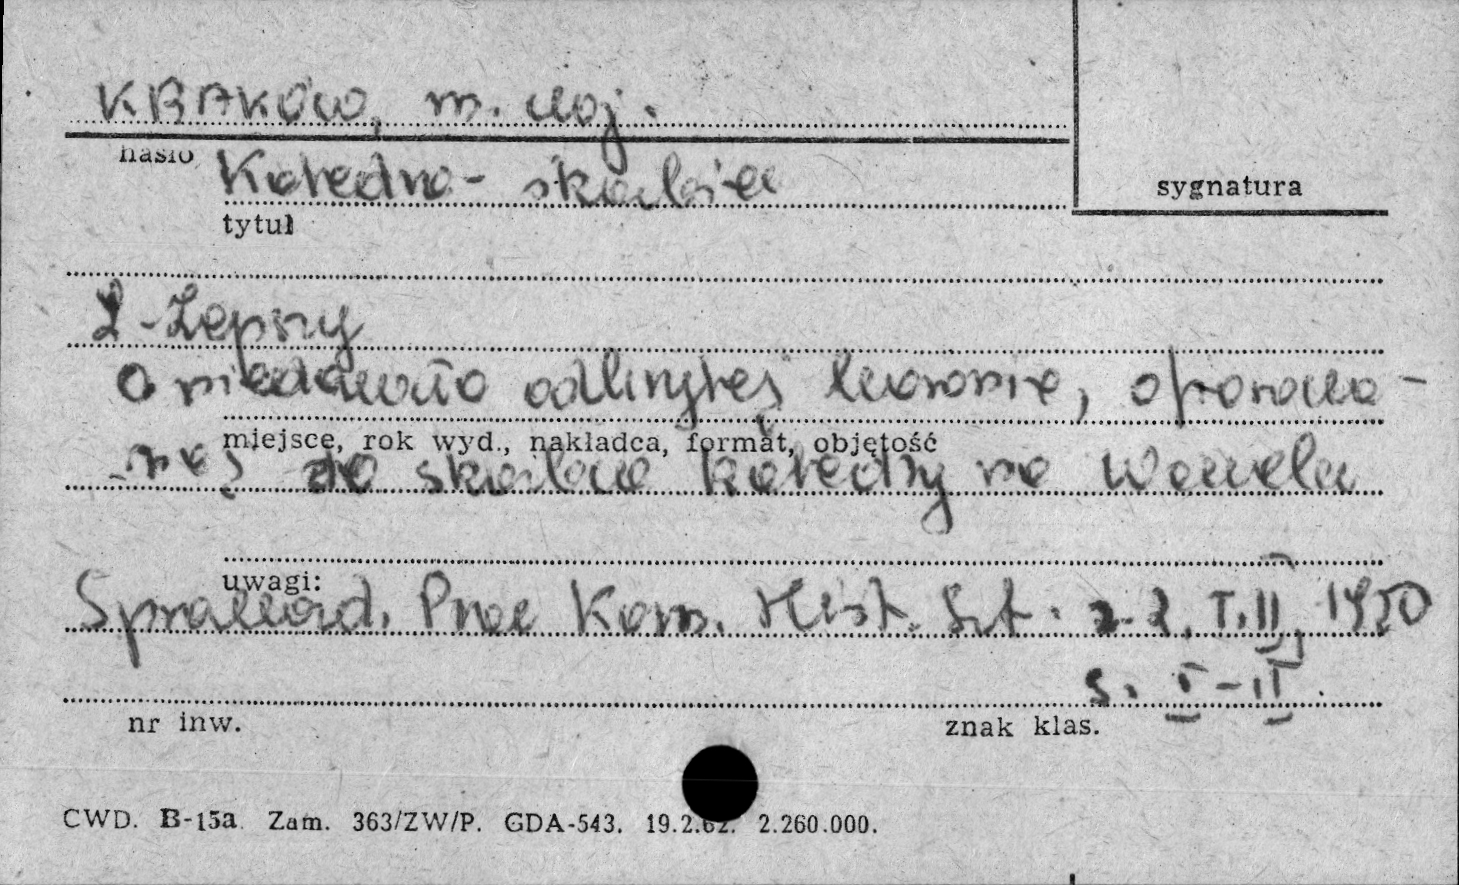 KRAKÓW, m. woj.
hasło
Katedra - skarbiec
sygnatura
tytuł
L. Lepszy
O niedawno odkrytej koronie, ofiarowa-
miejsce, rok wyd., nakładca, format, objętość
-nej do skarbca katedry na Wawelu
uwagi:
Sprawozd. Prac Kom. Hist. Szt.
s. I-II.
nr inw.
znak klas.
CWD. B-15a Zam. 363/ZW/P. GDA-543. 19.2.62. 2.260.000.